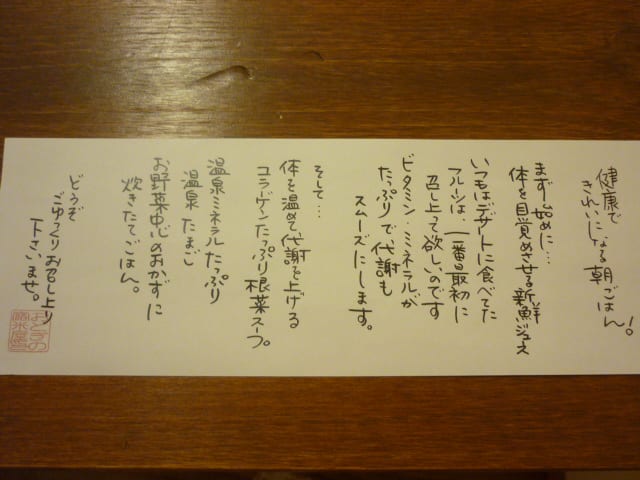 健康で
きれいになる朝ごはん!
まず始めに…
体を目覚めさせる新鮮ジュース
いつもはデザートに食べてた
フルーツは、一番最初に
召し上って欲しいのです
ビタミン・ミネラルが
たっぷりで代謝も
スムーズにします。
そして…
体を温めて代謝を上げる
コラーゲンたっぷり根菜スープ。
温泉ミネラルたっぷり
温泉たまご
お野菜中心のおかずに
炊きたてごはん。
どうぞ
ごゆっくりお召し上り
下さいませ。